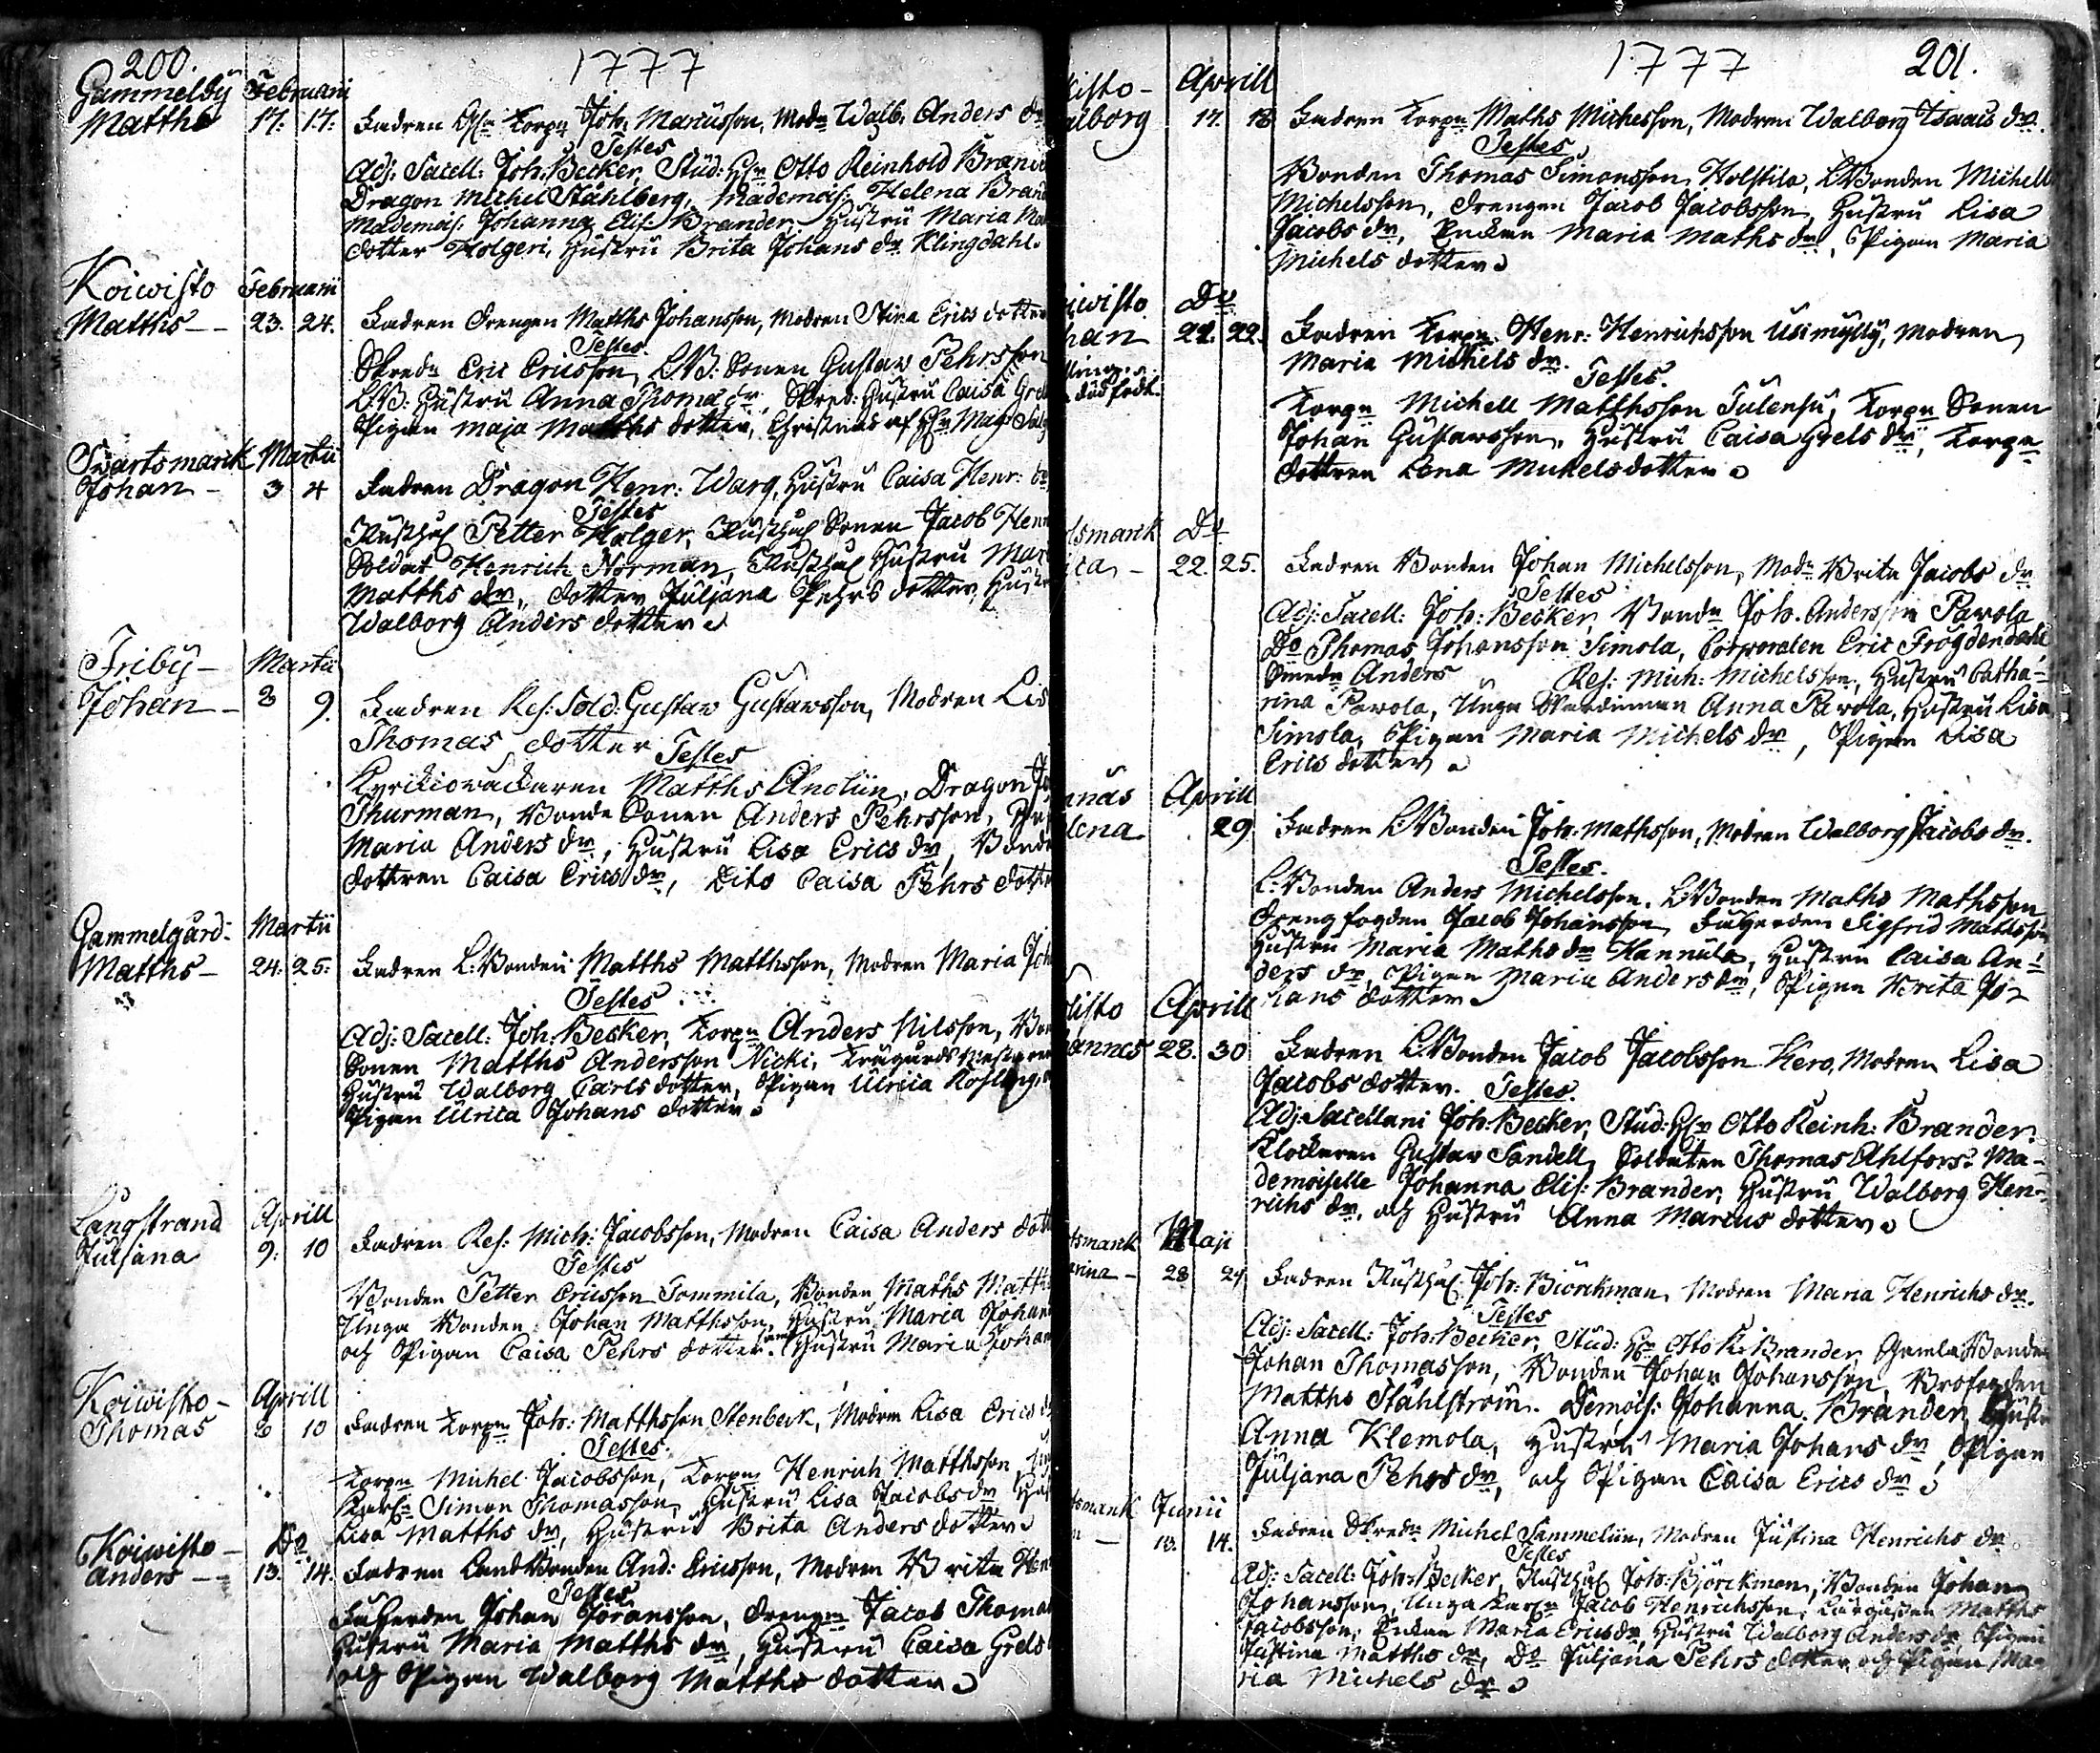 200.
1777
Gammelby Februarii
Matths 17: 17: Fadren Torpn Joh. Marcusson, Modn Walb. Anders dr
Testes
Adj. Sacell: Joh: Becker, Stud: Hr Otto Reinhold Brand
Dragon Michel Ståhlberg, Mademois: Helena Brand
Mademois: Johanna Elis: Brander. Hustru Maria
dotter Holgeri, Hustru Brita Johans dr Klingdahl.
Koiwisto Februarii
Matths - 23. 24. Fadren Drengen Matths Johansson, Modren Stina Erics dotter
Testes.
Skredn Eric Ericsson, LB: Sonen Gustav Pehrsson
LB: Hustru Anna Thomæ dr, Skred: Hustru Caisa Grel
Pigan Maja Matths dotter, Christnad af Hr Mag:
Swartsmark Martii
Johan - 3 4 Fadren Dragon Henr: Warg, Hustru Caisa Henr: dr
Testes
Rusthål Petter Holger, Rusthål Sonen Jacob Henr
Soldat Henrich Norman, Rusthål Hustru Mar
Matths dr, dotter Juljana Pehrs dotter, Hustr
Walborg Anders dotter
Friby - Martii
Johan - 8 9. Fadren Res: Sold: Gustav Gustavsson, Modren Lis
Thomas dotter Testes
Kyrkiowäktaren Matths Anolun, Dragon
Thurman, Bonde Sonen Anders Pehrsson,
Maria Anders dr, Hustru Lisa Erics dr, Bonde
dottren Caisa Erics dr, Dito Caisa Pehrs dott
Gammelgård: Martii
Matths - 24: 25: Fadren L: Bonden Matths Matthsson, Modren Maria Joh
Testes
Adj: Sacell: Joh: Becker, Torpn Anders Nilsson, Bon
Sonen Matths Andersson Nicki, Trägårds Mestaren
Hustru Walborg Carls dotter, Pigan Ulrica
Pigan Ulrica Johans dotter
Långstrand Aprill
Juljana 9: 10 Fadren Res: Mich: Jacobsson, Modren Caisa Anders dott
Testes
Bonden Petter Ericsson Tommila, Bonden Maths Matth
Unga Bonden Johan Matthsson, Hustru Maria Johan
och Pigan Caisa Pehrs dotter. Hustru Maria Johan
Koiwisto - Aprill
Thomas 8 10 Fadren Torpn Joh: Matthsson Stenbeck, Modren Lisa Erics dr
Testes.
Torpn Michel Jacobsson, Torpn Henrich Matthsson
Simon Thomasson, Hustru Lisa Jacobs dr
Lisa Matths dr, Hustru Brita Anders dotter
Koiwisto - Do
Anders - 13. 14. Fadren Land Bonden And: Ericsson, Modren Brita Hen
Testes
Johan Joransson, Drengn Jacob Thomas
Hustru Maria Matths dr, Hustru Caisa Grels
och Pigan Walborg Matths dotter
1777
201.
kisto - Aprill
alborg 17. 18 Fadren Torpn Maths Michelsson, Modren Walborg Isaacs dr.
Testes
Bonden Thomas Simonsson Holstila, LBonden Michell
Michelsson, Drengen Jacob Jacobsson, Hustru Lisa
Jacobs dr, Enkan Maria Maths dr, Pigan Maria
Michels dotter
iwisto Do
han 22. 22. Fadren Torpn Henr: Henrichsson Usimylly, Modren
lling
dödfödt. Maria Michels dr. Testes.
Torpn Michell Matthsson Tulensu, Torpn Sonen
Johan Gustavsson, Hustru Caisa Grels dr, Torpn
dottren Lena Michelsdotter
tsmark Do
ita - 22. 25. Fadren Bonden Johan Michelsson, Modn Brita Jacobs dr
Testes
Adj: Sacell: Joh: Becker, Bondn Joh. Andersson Pavola
Do Thomas Johansson Simola, Corporalen Eric Frögdendahl
Smedn Anders Res: Mich: Michelsson, Hustru Catha-
rina Pavola, Unga Anna Pavola, Hustru Lisa
Simola, Pigan Maria Michels dr, Pigan Lisa
Erics dotter
näs Aprill
lena 29. Fadren LBonden Joh: Mathsson, Modren Walborg Jacobs dr.
Testes.
L: Bonden Anders Michelsson, LBonden Maths Mathsson
Dreng fogden Jacob Johansson, Sigfrid Mathsson
Hustru Maria Maths dr Hannula, Hustru Caisa An-
ders dr, Pigan Maria Anders dr, Pigan Brita Jo-
hans dotter
isto Aprill
annes 28. 30 Fadren LBonden Jacob Jacobsson Kero, Modren Lisa
Jacobs dotter. Testes.
Adj: Sacellani Joh: Becker, Stud: Hr Otto Reinh: Brander.
Klockaren Gustav Sandell, Soldaten Thomas Ahlfors: Ma-
demoiselle Johanna Elis: Brander, Hustru Walborg Hen-
richs dr, och Hustru Anna Marcus dotter
tsmark Maji
arina - 28 29 Fadren Rusthål: Joh: Biörckman, Modren Maria Henrichs dr.
Testes
Adj: Sacell: Joh: Becker, Stud: Hr Otto R: Brander, Gamla Bonden
Johan Thomasson, Bonden Johan Johansson, Brofogden
Matths Ståhlström. Demois: Johanna Brander, Hustru
Anna Klemola, Hustru Maria Johans dr, Pigan
Juljana Pehrs dr, och Pigan Caisa Erics dr
tsmark Junii
- 13. 14. Fadren Skredn Michel Sammelin, Modren Justina Henrichs dr
Testes
Adj: Sacell: Joh: Becker, Rusthål Joh: Björckman, Bonden Johan
Johansson, Unga Jacob Henrichsson, Matths
Jacobsson, Enkan Maria Erics dr, Hustru Walborg Anders dr, Pigan
Justina Matths dr, Do Juljana Pehrs dotter och Pigan Ma-
ria Michels dr